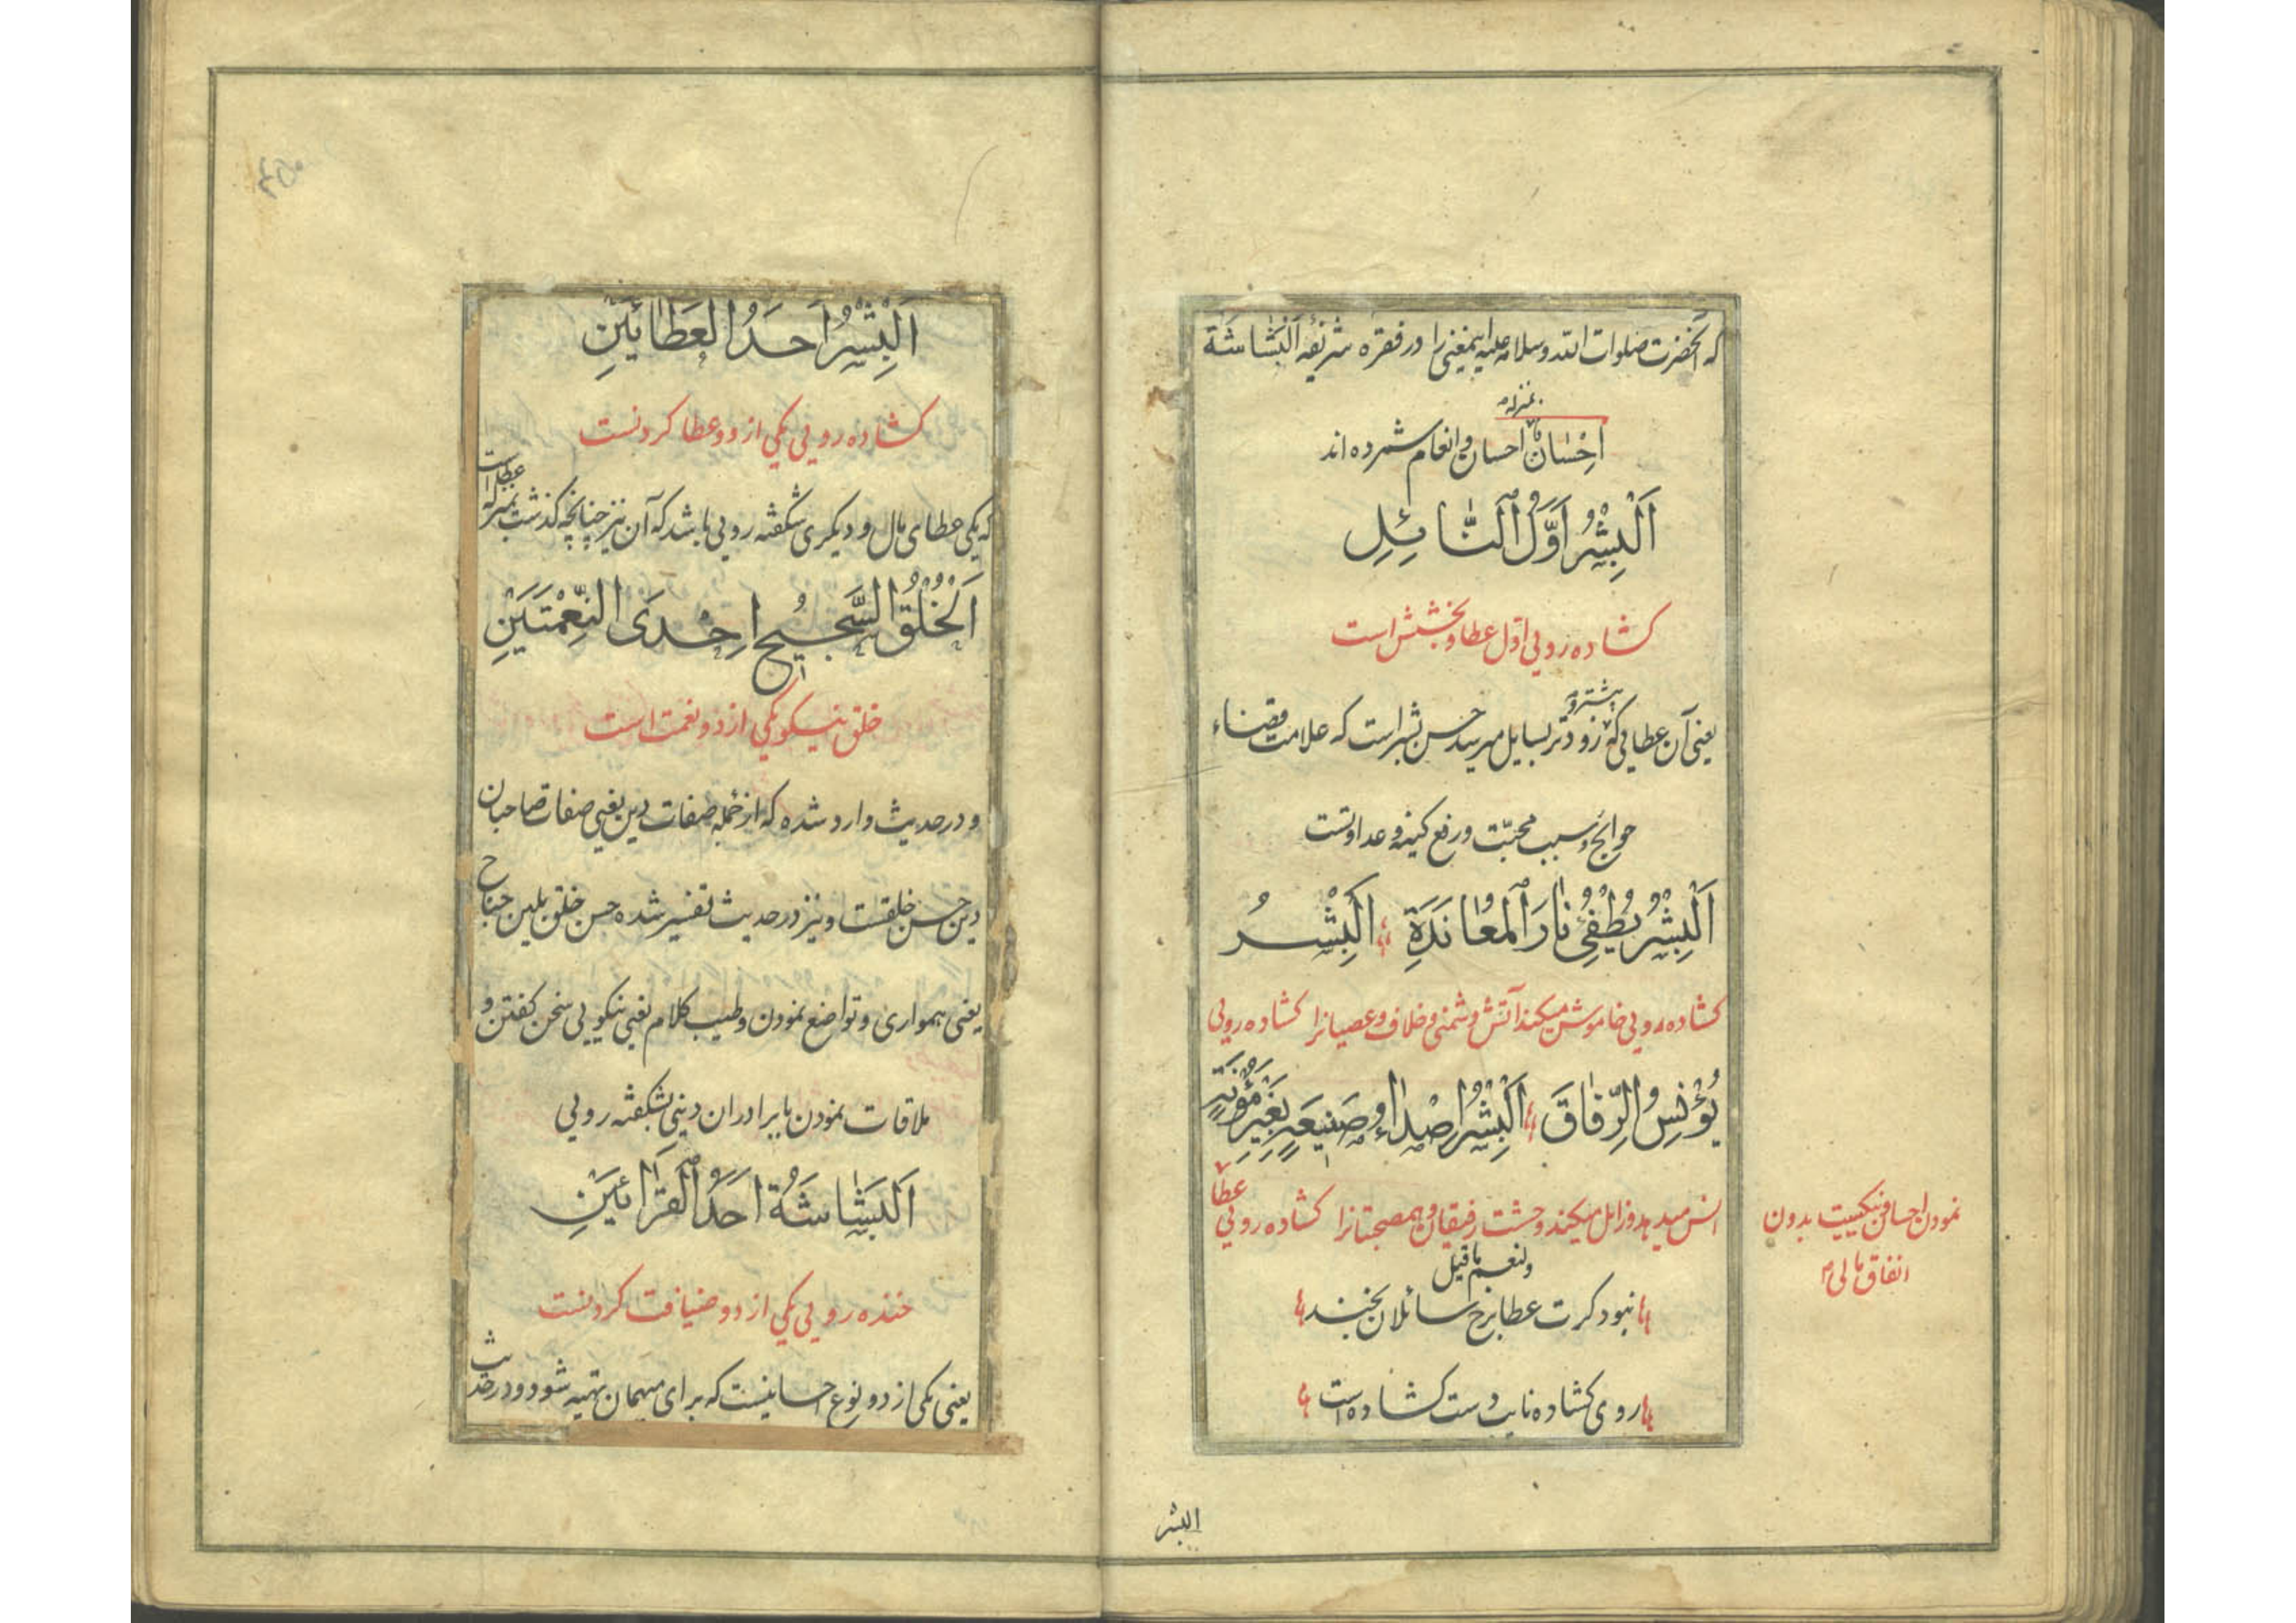 که آنحضرت صلوات الله وسلامه علیه اینمعنی را در فقره شریفه اَلْبَشَاشَةُ
بمنزلهٔ
اِحْسَانٌ احسان و انعام شمرده اند
اَلْبِشْرُ اَوَّلُ اَلنَّائِلِ
کشاده رویی اوّل عطا و بخشش است
پیشتر و
یعنی آن عطایی که زودتر بسایل میرسد حسن بشر است که علامت قضاء
حوایج و سبب محبّت و رفع کینه و عداوتست
اَلْبِشْرُ يُطْفِئُ نَارَ اَلْمُعَانَدَةِ اَلْبِشْرُ
کشاده رویی خاموش میکند آتش دشمنی و خلاف و عصیانرا کشاده رویی
يُؤْنِسُ الرِّفَاقَ اَلْبِشْرُ اِصْدَاءُ صَنِيعَةٍ بِغَيْرِ مَؤُنَةٍ
انس میدهد و زایل میکند وحشت رفیقان و همصحبتانرا کشاده رویی عطا
نمودن احسان نیکیست بدون
انفاق مالی
ولنعم ما قیل
نبود کرت عطا برخ سائلان بخند
روی کشاده نایب دست کشاده است
البشر
اَلْبِشْرُ اَحَدُ الْعَطَائَيْنِ
کشاده رویی یکی از دو عطا کردنست
که یکی عطای مال و دیکری شکفته رویی باشد که آن نیز چنانچه کذشت بمنزله عطاست
اَلْخُلْقُ السَّجِيحُ اِحْدَى النِّعْمَتَيْنِ
خلق نیکو یکی از دو نعمت است
و در حدیث وارد شده که از جمله صفات دین یعنی صفات صاحبان
دین حسن خلقست و نیز در حدیث تفسیر شده حسن خلق بلین جناح
یعنی همواری و تواضع نمودن و طیب کلام یعنی نیکویی سخن کفتن و
ملاقات نمودن با برادران دینی بشکفته رویی
اَلْبَشَاشَةُ اَحَدُ اَلْقِرَائَيْنِ
خنده رویی یکی از دو ضیافت کردنست
یعنی یکی از دو نوع احسانیست که برای میهمان تهیه شود و در حدیث